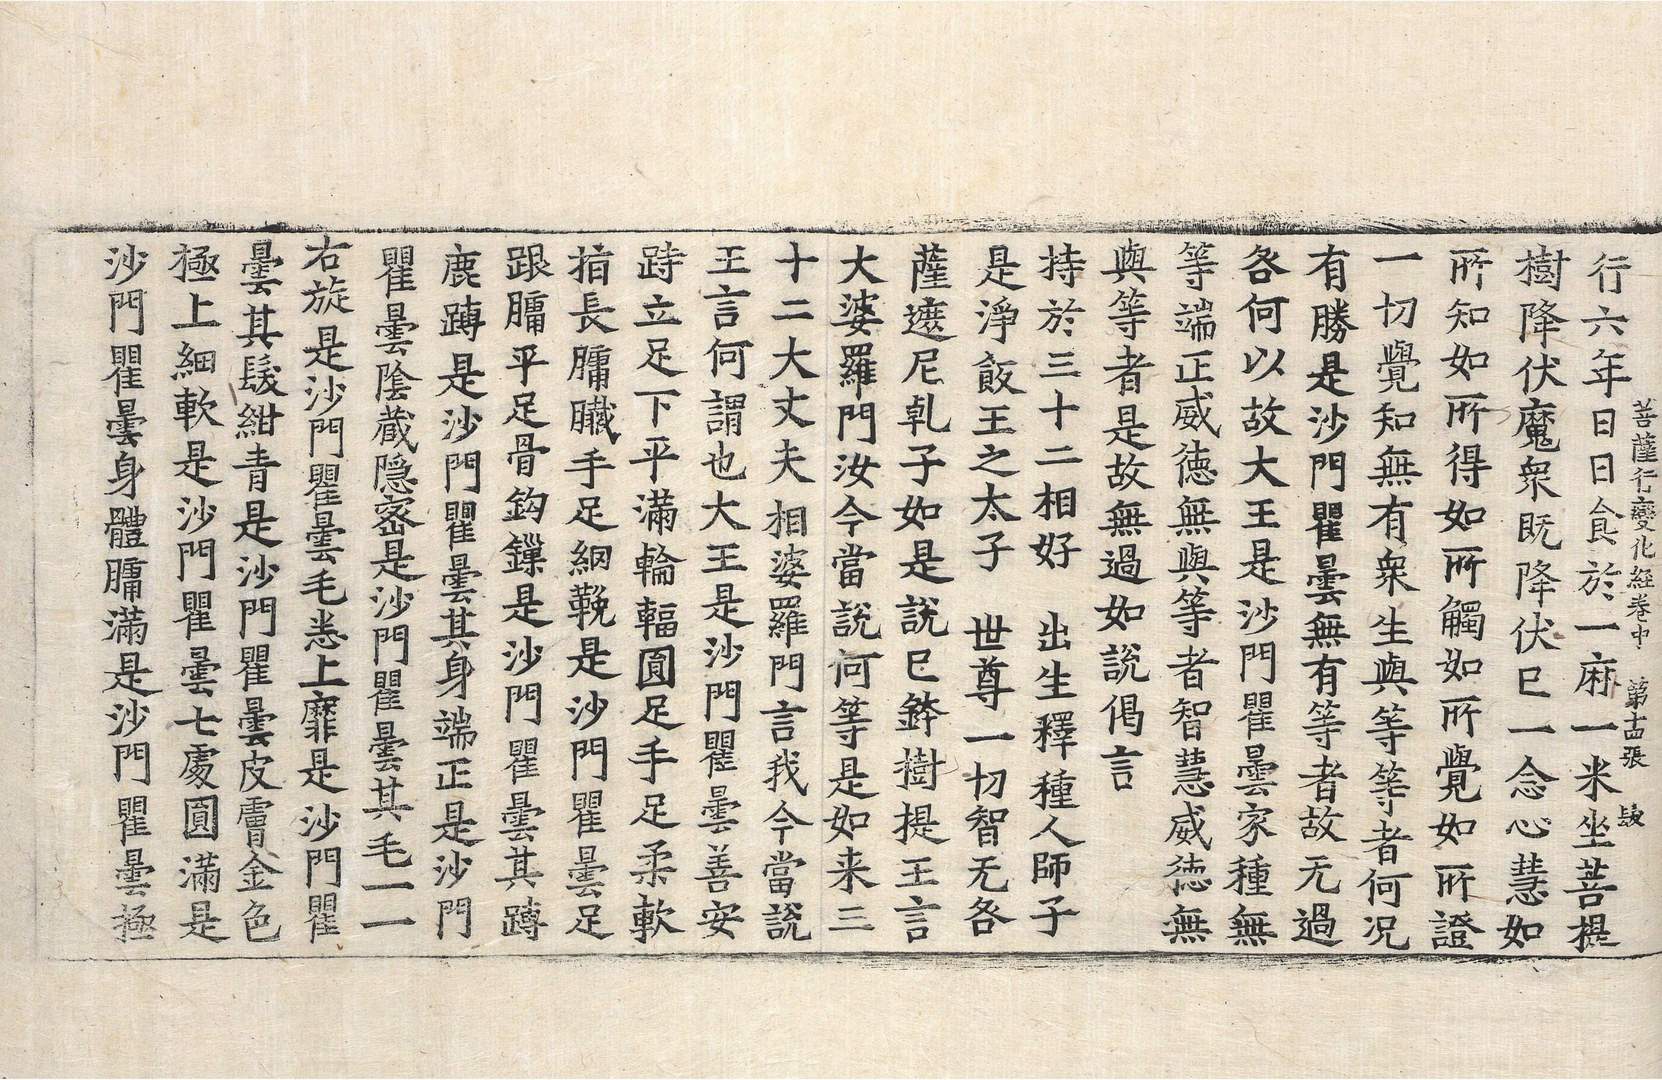 菩薩行變化經卷中 第十四張 䯻
行六年日日食於一麻一米坐菩提
樹降伏魔衆既降伏已一念心慧如
所知如所得如所觸如所覺如所證
一切覺知無有衆生與等等者何况
有勝是沙門瞿曇無有等者故无過
各何以故大王是沙門瞿曇家種無
等端正威徳無與等者智慧威徳無
與等者是故無過如說偈言
持於三十二相好 出生釋種人師子
是淨飯王之太子 世尊一切智无咎
薩遮尼乹子如是說已鉢樹提王言
大婆羅門汝今當說何等是如来三
十二大丈夫相婆羅門言我今當說
王言何謂也大王是沙門瞿曇善安
跱立足下平滿輪輻圓足手足柔軟
指長𦟛𦢊手足網鞔是沙門瞿曇足
跟𦟛平足骨鈎鏁是沙門瞿曇其䏝
鹿䏝是沙門瞿曇其身端正是沙門
瞿曇陰蔵隱宻是沙門瞿曇其毛一一
右旋是沙門瞿曇毛悉上靡是沙門瞿
曇其髮紺青是沙門瞿曇皮膚金色
極上細軟是沙門瞿曇七處圓滿是
沙門瞿曇身體𦟛滿是沙門瞿曇極